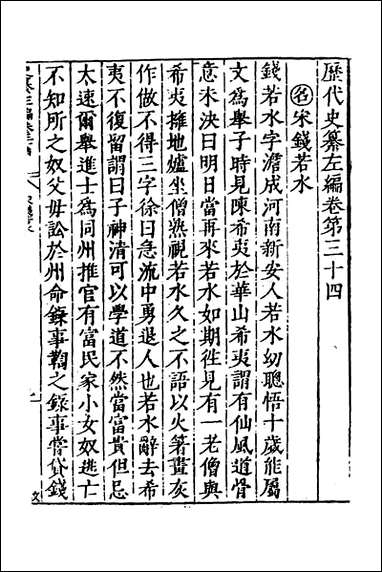 歷代史纂左編卷第三十四
名宋錢若水
錢若水字澹成河南新安人若水幼聰悟十歲能屬
文為舉子時見陳希夷於華山希夷謂有仙風道骨
意未決曰明日當再來若水如期徃見有一老僧與
希夷擁地爐坐僧熟視若水久之不語以火箸畫灰
作做不得三字徐曰急流中勇退人也若水辭去希
夷不復留謂曰子神清可以學道不然當富貴但忌
太速爾舉進士為同州推官有富民家小女奴逃亡
不知所之奴父母訟於州命錄事鞫之錄事嘗貸錢